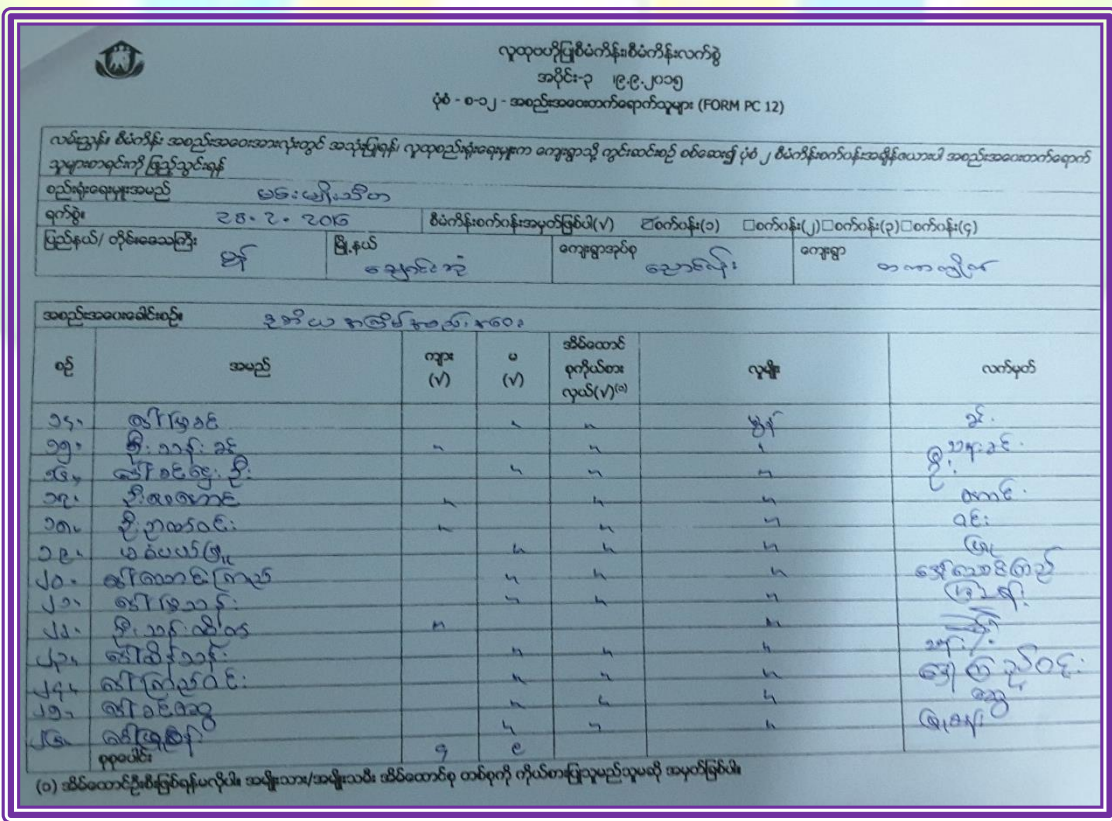 လူထုဗဟိုပြုစီမံကိန်းစီမံကိန်းလက်စွဲ
အပိုင်း-၃ ၊၉.၉.၂၀၁၅
ပုံစံ - စ-၁၂ - အစည်းအဝေးတက်ရောက်သူများ (FORM PC 12)
လမ်းညွှန်။ စီမံကိန်း အစည်းအဝေးအားလုံးတွင် အသုံးပြုရန်၊ လူထုစည်းရုံးရေးမှူးက ကျေးရွာသို့ ကွင်းဆင်းစဉ် စစ်ဆေး၍ ပုံစံ ၂ စီမံကိန်းစက်ဝန်းအချိန်ဇယားပါ အစည်းအဝေးတက်ရောက်
သူများစာရင်းကို ဖြည့်သွင်းရန်
စည်းရုံးရေးမှူးအမည်
ရက်စွဲ။ 28.2.2016 စီမံကိန်းစက်ဝန်းအမှတ်ဖြစ်ပါ(√) ☑စက်ဝန်း(၁) □စက်ဝန်း(၂)□စက်ဝန်း(၃)□စက်ဝန်း(၄)
ပြည်နယ်/ တိုင်းဒေသကြီး မွန် မြို့နယ် ချောင်းဆုံ ကျေးရွာအုပ်စု ညောင်လှိုင်း ကျေးရွာ
အစည်းအဝေးခေါင်းစဉ်။ ဒုတိယ အကြိမ် အစည်းအဝေး
စဉ် အမည် ကျား (√) မ (√) အိမ်ထောင်စုကိုယ်စားလှယ်(√)⁽¹⁾ လူမျိုး လက်မှတ်
၁၄. ဒေါ်မြခင် " " မွန် ခင်
၁၅. ဦးသန်းခင် " " "
၁၆. ဒေါ်ခင်ဌေးဦး " " "
၁၇. " " "
၁၈. ဦးဉာဏ်ဝင်း " " " ဝင်း
၁၉. " " " ဖြူ
၂၀. ဒေါ်သောင်းကြည် " " "
၂၁. ဒေါ်မြသန်း " " "
၂၂. " "
၂၃. ဒေါ်သိန်းသန်း " " "
၂၄. ဒေါ်ကြည်ဝင်း " " " ဒေါ်ကြည်ဝင်း
၂၅. ဒေါ်ခင်ဆွေ " " " ဆွေ
၂၆. " " "
စုစုပေါင်း ၄ ၉
(၁) အိမ်ထောင်ဦးစီးဖြစ်ရန်မလိုပါ။ အမျိုးသား/အမျိုးသမီး အိမ်ထောင်စု တစ်စုကို ကိုယ်စားပြုသူမည်သူမဆို အမှတ်ဖြစ်ပါ။